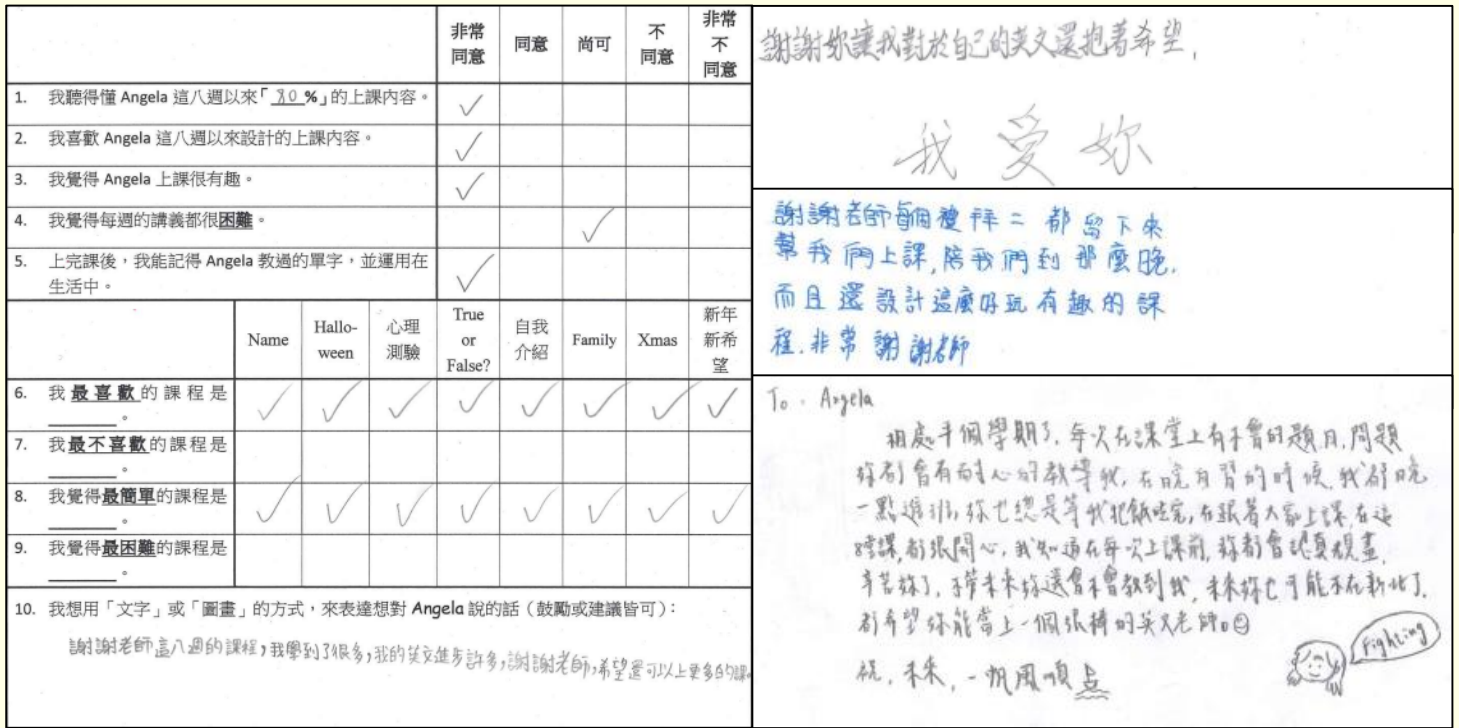 非常同意 同意 尚可 不同意 非常不同意
1. 我聽得懂 Angela 這八週以來「 80 %」的上課內容。
2. 我喜歡 Angela 這八週以來設計的上課內容。
3. 我覺得 Angela 上課很有趣。
4. 我覺得每週的講義都很困難。
5. 上完課後，我能記得 Angela 教過的單字，並運用在
生活中。
Name Hallo-ween 心理測驗 True or False? 自我介紹 Family Xmas 新年新希望
6. 我最喜歡的課程是
______。
7. 我最不喜歡的課程是
______。
8. 我覺得最簡單的課程是
______。
9. 我覺得最困難的課程是
______。
10. 我想用「文字」或「圖畫」的方式，來表達想對 Angela 說的話（鼓勵或建議皆可）：
謝謝老師這八週的課程，我學到了很多，我的英文進步許多，謝謝老師，希望還可以上更多的課。
謝謝妳讓我對於自己的英文還抱著希望，
我愛妳
謝謝老師每個禮拜二都留下來
幫我們上課，陪我們到那麼晚，
而且還設計這麼好玩有趣的課
程，非常謝謝老師
To. Angela
相處半個學期了，每次在課堂上有不會的題目，問題
妳都會有耐心的教導我，在晚自習的時候，我都晚
一點進班，妳也總是等我把飯吃完，在跟著大家上課，在這
8堂課，都很開心，我知道在每次上課前，妳都會認真規畫，
辛苦妳了，不管未來妳還會不會教到我，未來妳也可能不在新北了，
都希望妳能當上一個很棒的英文老師。
祝，未來，一帆風順
Fighting